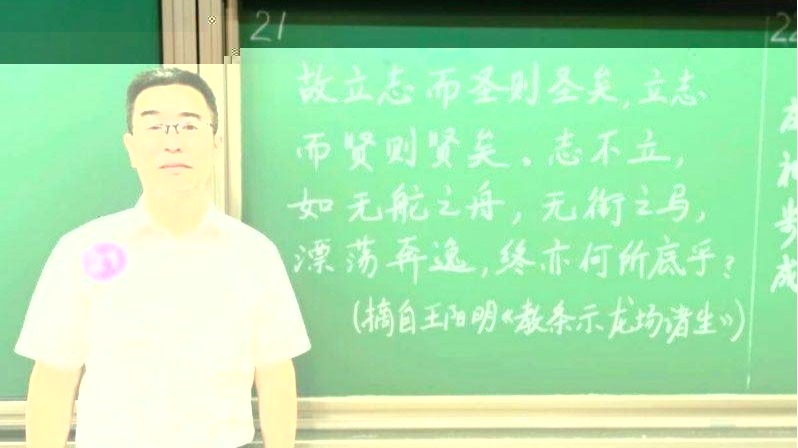 21
故立志而圣则圣矣,立志
而贤则贤矣。志不立,
如无舵之舟,无衔之马,
漂荡奔逸,终亦何所底乎?
(摘自王阳明《教条示龙场诸生》)
22